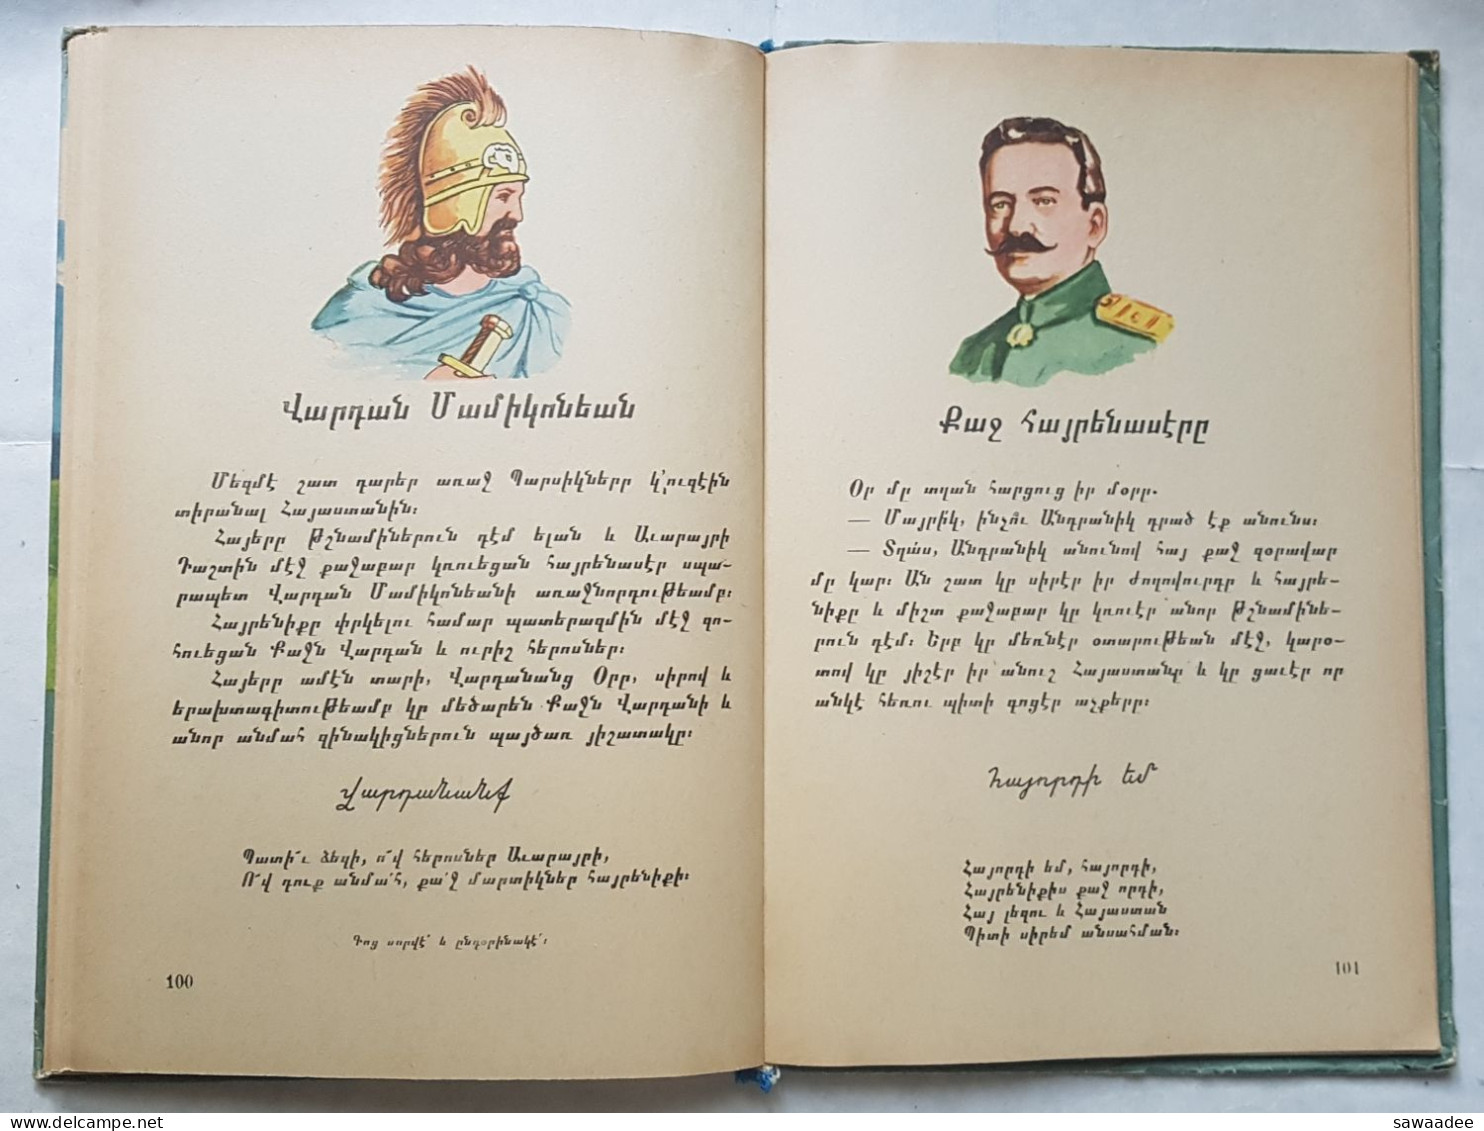 Վարդան Մամիկոնեան
Մեզմէ շատ դարեր առաջ Պարսիկները կ՚ուզէին
տիրանալ Հայաստանին։
Հայերը թշնամիներուն դէմ ելան և Աւարայրի
Դաշտին մէջ քաջաբար կռուեցան հայրենասէր սպա-
րապետ Վարդան Մամիկոնեանի առաջնորդութեամբ։
Հայրենիքը փրկելու համար պատերազմին մէջ զո-
հուեցան Քաջն Վարդան և ուրիշ հերոսներ։
Հայերը ամէն տարի, Վարդանանց Օրը, սիրով և
երախտագիտութեամբ կը մեծարեն Քաջն Վարդանի և
անոր անմահ զինակիցներուն պայծառ յիշատակը։
Վարդանանք
Պատի՜ւ ձեզի, ո՜վ հերոսներ Աւարայրի,
Ո՜վ դուք անմա՛հ, քա՛ջ մարտիկներ հայրենիքի։
Գոց սորվէ՛ և ընդօրինակէ՛։
100
Քաջ հայրենասէրը
Օր մը տղան հարցուց իր մօրը.
— Մայրի՛կ, ինչո՞ւ Անդրանիկ դրած էք անունս։
— Տղա՛ս, Անդրանիկ անունով հայ քաջ զօրավար
մը կար։ Ան շատ կը սիրէր իր ժողովուրդը և հայրե-
նիքը և միշտ քաջաբար կը կռուէր անոր թշնամինե-
րուն դէմ։ Երբ կը մեռնէր օտարութեան մէջ, կարօ-
տով կը յիշէր իր անուշ Հայաստանը և կը ցաւէր որ
անկէ հեռու պիտի գոցէր աչքերը։
Հայորդի եմ
Հայորդի եմ, հայորդի,
Հայրենիքիս քաջ որդի,
Հայ լեզու և Հայաստան
Պիտի սիրեմ անսահման։
101
sawaadee